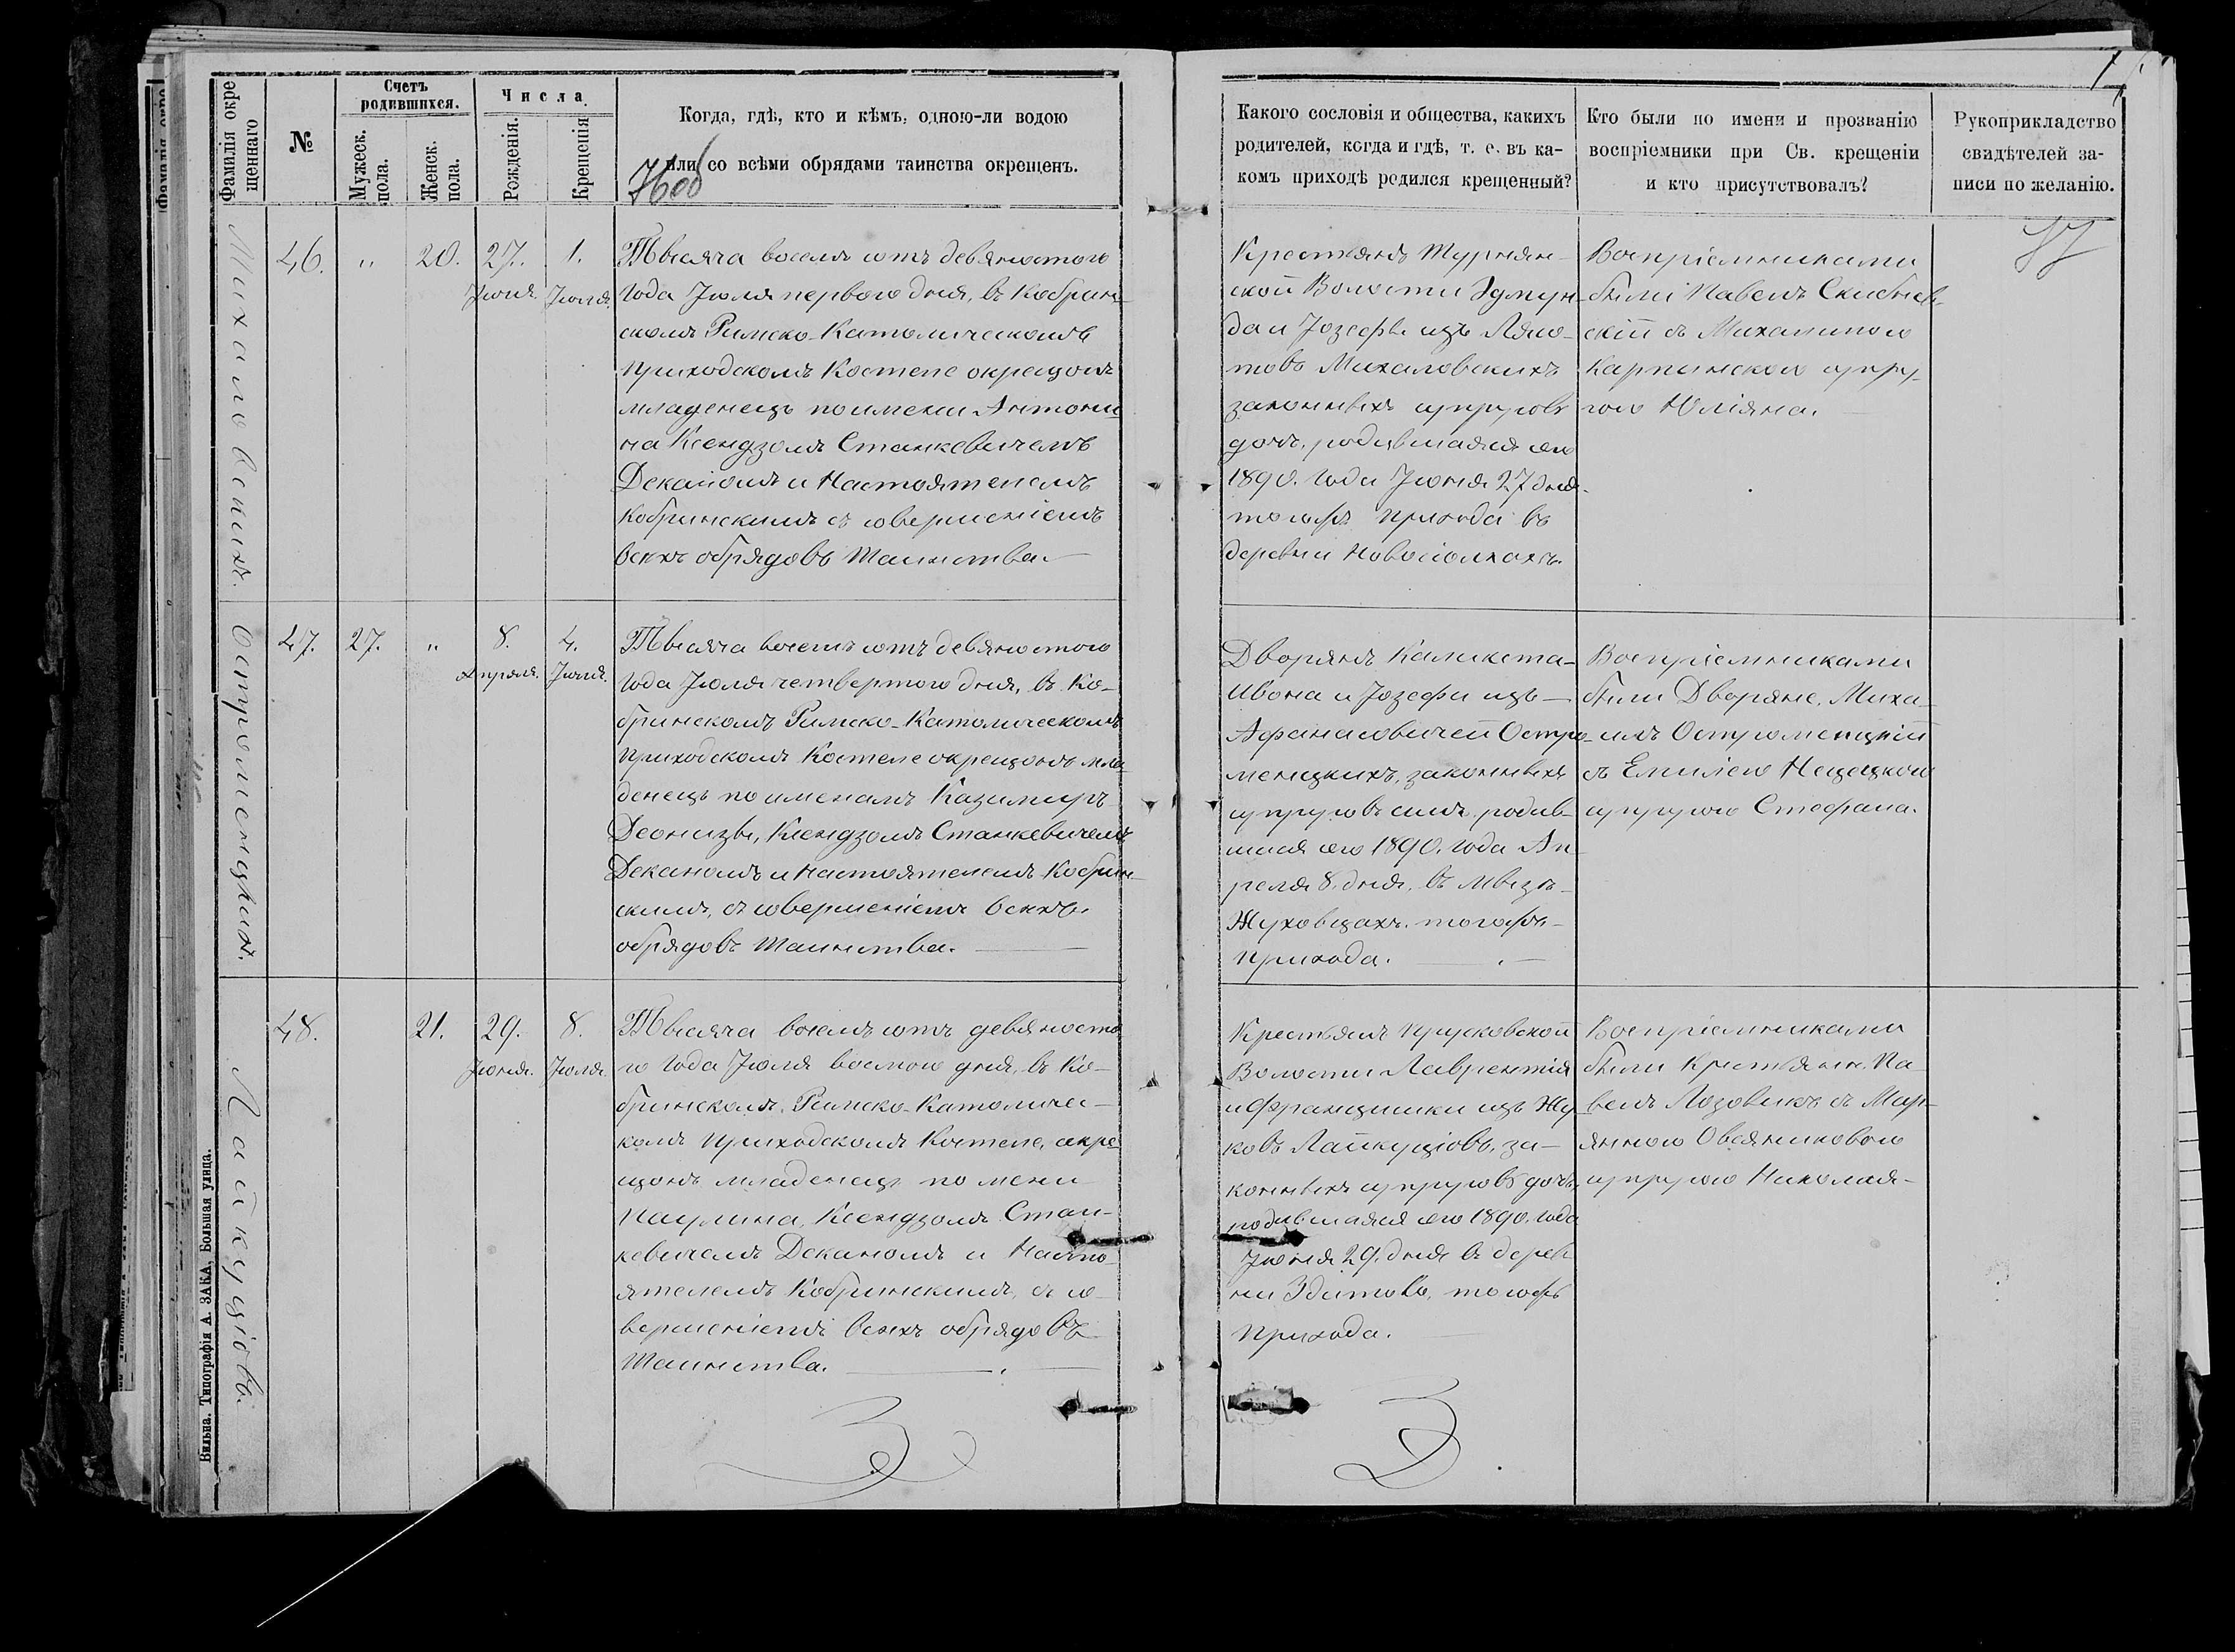 Фамилія окре
щеннаго
№
Счетъ
родившихся.
Мужеск.
пола.
Женск.
пола.
Числа
Рожденія.
Крещенія
Когда, гдѣ, кто и кѣмъ, одною-ли водою
или со всѣми обрядами таинства окрещенъ.
Какого сословія и общества, какихъ
родителей, когда и гдѣ, т. е. въ ка-
комъ приходѣ родился крещенный?
Кто были по имени и прозванію
воспріемники при Св. крещеніи
и кто присутствовалъ?
Рукоприкладство
свидѣтелей за-
писи по желанію.
Михаловскихъ.
46. „ 20. 27. 1.
Іюня. Іюля.
Тысяча восемь сотъ девяностого
года Іюля первого дня, въ Кобрин-
скомъ Римско-Католическомъ
приходскомъ Костеле окрещонъ
младенецъ по имени Антони
на Ксендзомъ Станкевичемъ
Деканомъ и Настоятелемъ
Кобринскимъ съ совершеніемъ
всехъ обрядовъ Таинства.
Крестьянъ Турнян-
ской Волости Эдмун-
да и Іозефы изъ Лямо-
товъ Михаловскихъ
законныхъ супруговъ
дочь, родившаяся сего
1890. года Іюня 27 дня
тогожъ прихода въ
деревни Новосіолкахъ.
Воспріемниками
были Павелъ Скибнев-
скій съ Михалиною
Карпинскою супру-
гою Юліяна.
Остроменцкихъ.
47. 27. „ 8. 4.
Апреля. Іюля.
Тысяча восемь сотъ девяностого
года Іюля четвертого дня, въ Ко-
бринскомъ Римско-Католическомъ
приходскомъ Костеле окрещонъ мла-
денецъ по именамъ Казимиръ
Деонизы, Ксендзомъ Станкевичемъ
Деканомъ и Настоятелемъ Кобрин-
скимъ, съ совершеніемъ всехъ
обрядовъ Таинства.
Дворянъ Каликста-
Ивона и Іозефи изъ
Афанасовичей Остро-
менцкихъ, законныхъ
супруговъ сынъ, родив-
шися сего 1890. года Ап
реля 8. дня, въ
Жуховцахъ. тогожъ-
прихода.
Воспріемниками
были Дворяне, Миха-
илъ Остроменцкій
съ Емилею Нецецкою
супругою Стефана.
Лайкуціовъ.
48. 21. 29. 8.
Іюня. Іюля.
Тысяча восемь сотъ девяносто
го года Іюля восмого дня, въ Ко-
бринскомъ, Римско-Католичес-
комъ приходскомъ Костеле, окре
щонъ младенецъ по мени
Паулина, Ксендзомъ Стан-
кевичемъ Деканомъ и Насто-
ятелемъ Кобринскимъ, съ со-
вершеніемъ всехъ обрядовъ
Таинства.
Крестьянъ Прусковской
Волости Лаврентія
и Францишки изъ Жу-
ковъ Лайкуціовъ, за-
конныхъ супруговъ дочь,
родившаяся сего 1890. года
Іюня 29. дня въ дерев
ни Здитовѣ, тогожъ
прихода.
Воспріемниками
были Крестьяне, Па-
велъ Лозовикъ съ Мар-
янною Овсяниковою
супругою Николая-
Вильна. Типографія А. ЗАКА, Большая улица.